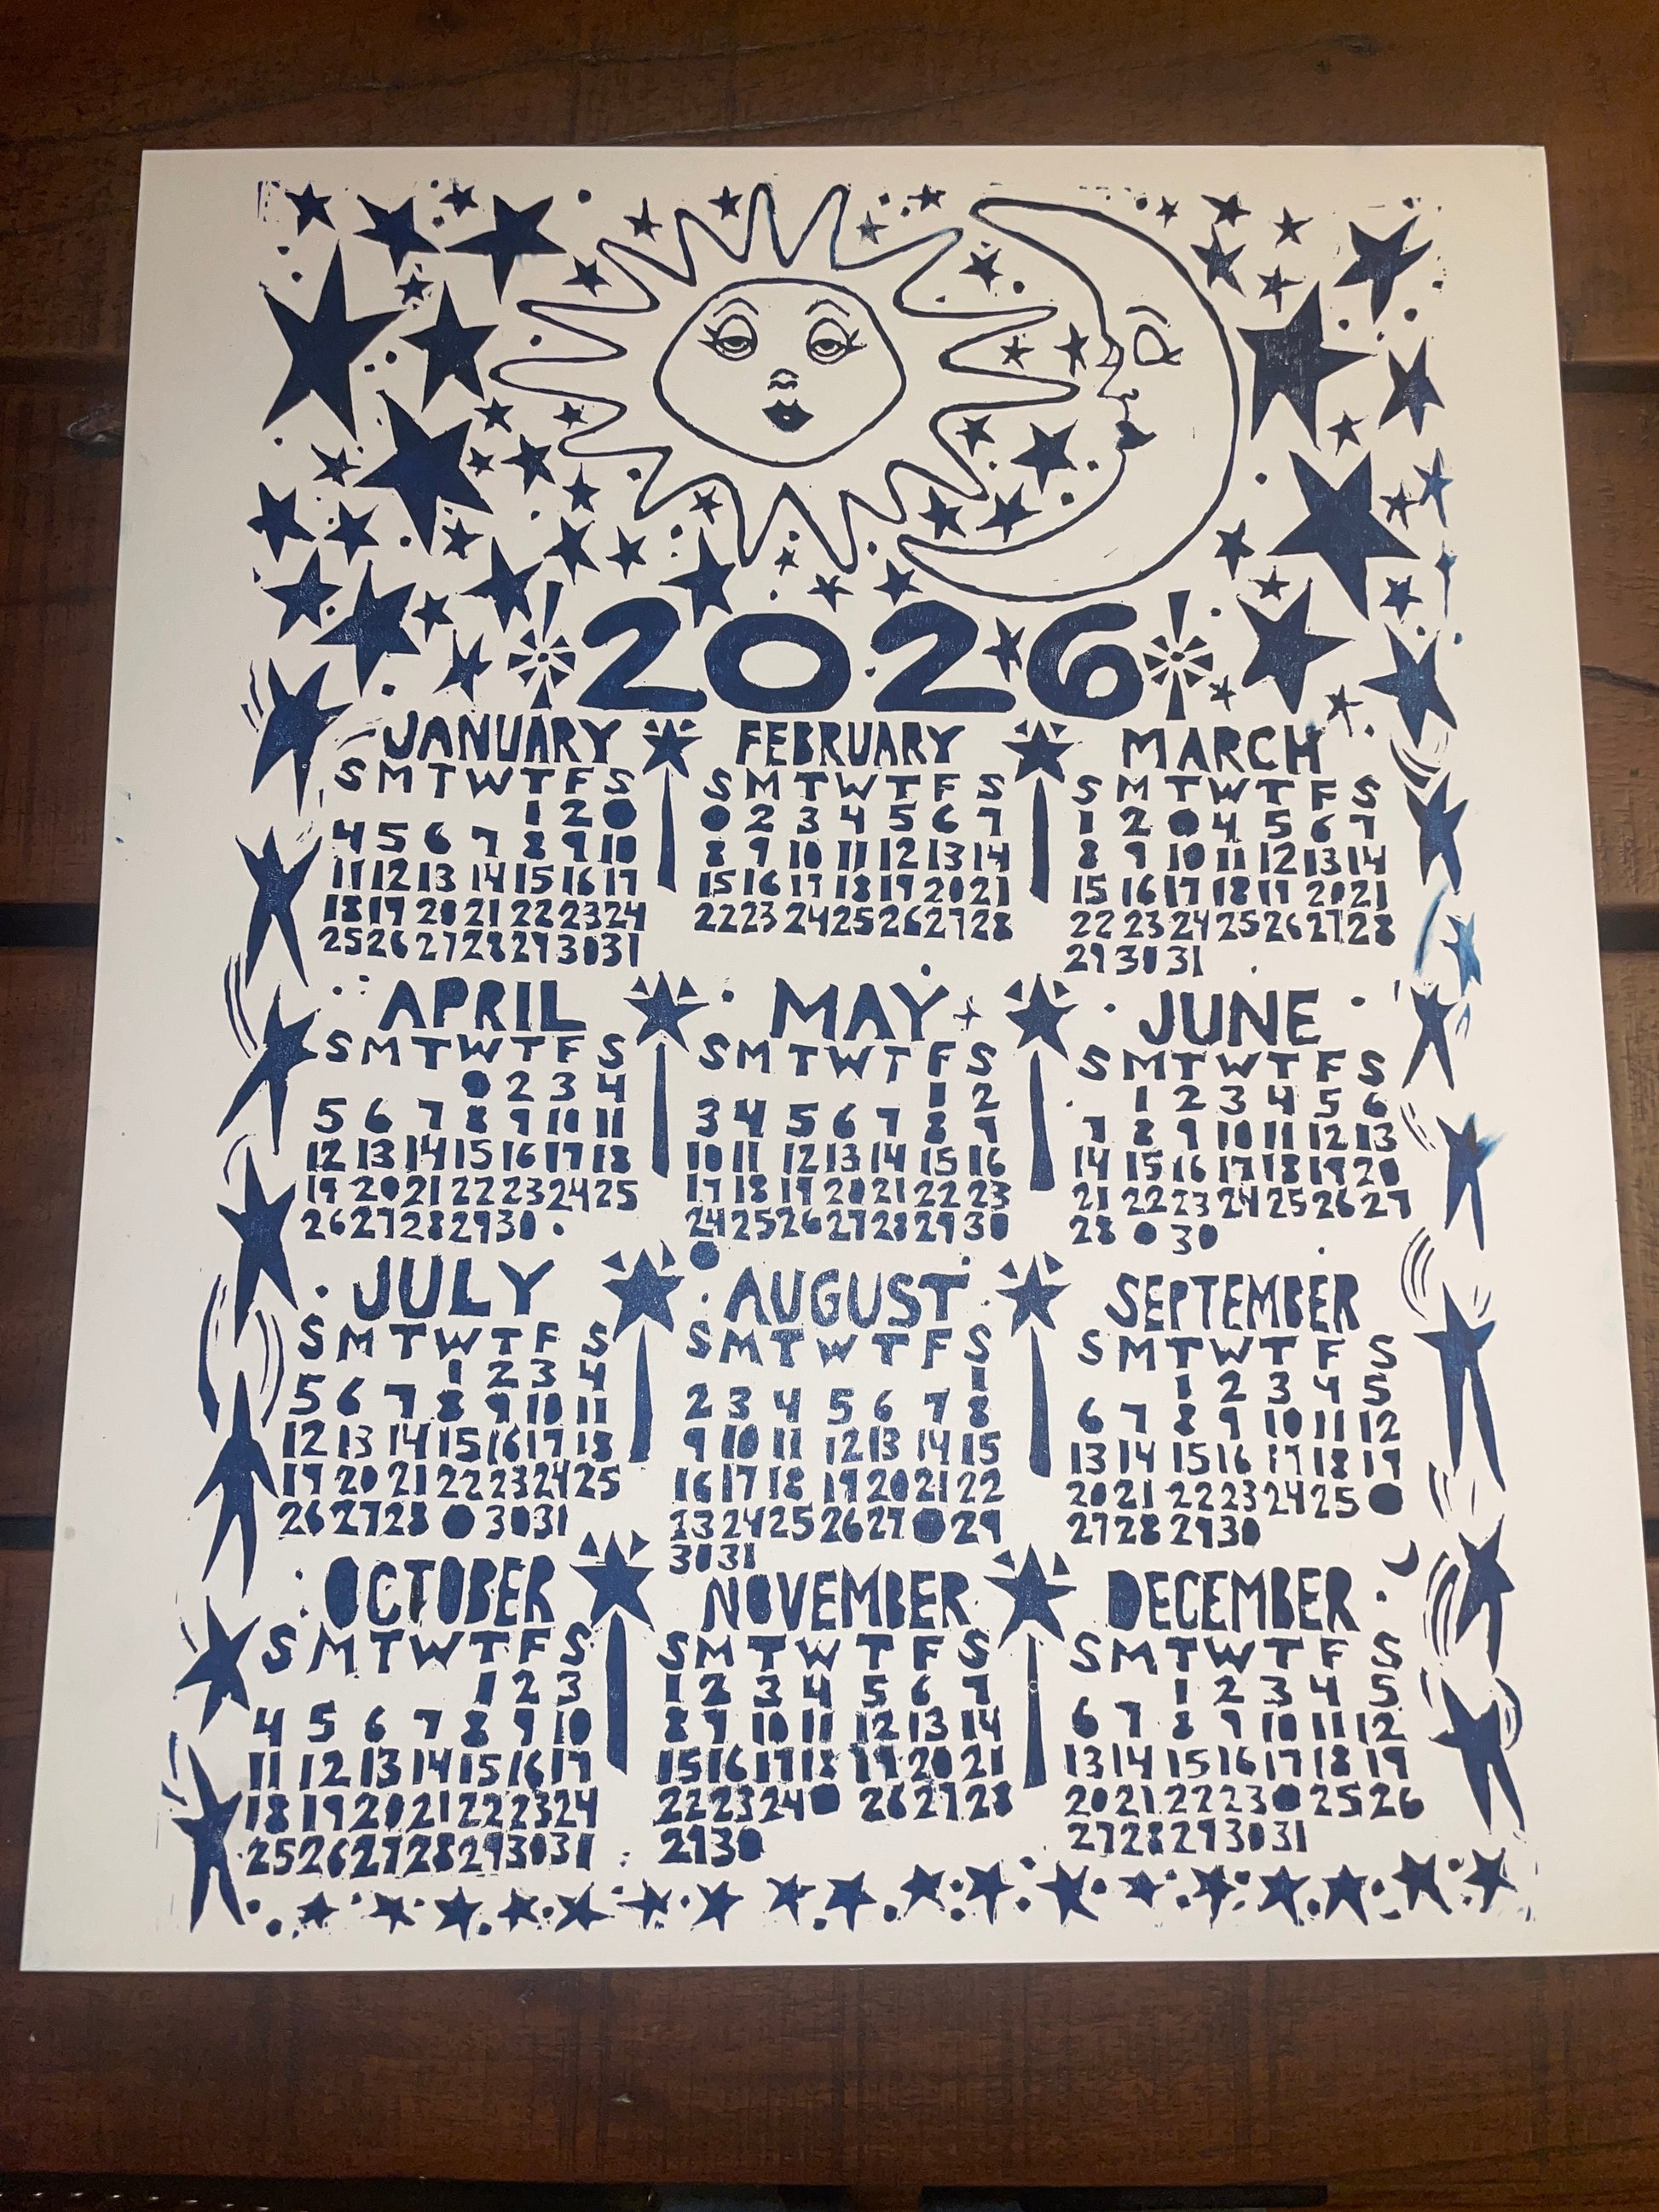 2026
JANUARY
S M T W T F S
1 2 ●
4 5 6 7 8 9 10
11 12 13 14 15 16 17
18 19 20 21 22 23 24
25 26 27 28 29 30 31
FEBRUARY
S M T W T F S
● 2 3 4 5 6 7
8 9 10 11 12 13 14
15 16 17 18 19 20 21
22 23 24 25 26 27 28
MARCH
S M T W T F S
1 2 ● 4 5 6 7
8 9 10 11 12 13 14
15 16 17 18 19 20 21
22 23 24 25 26 27 28
29 30 31
APRIL
S M T W T F S
● 2 3 4
5 6 7 8 9 10 11
12 13 14 15 16 17 18
19 20 21 22 23 24 25
26 27 28 29 30
MAY
S M T W T F S
1 2
3 4 5 6 7 8 9
10 11 12 13 14 15 16
17 18 19 20 21 22 23
24 25 26 27 28 29 30
●
JUNE
S M T W T F S
1 2 3 4 5 6
7 8 9 10 11 12 13
14 15 16 17 18 19 20
21 22 23 24 25 26 27
28 ● 30
JULY
S M T W T F S
1 2 3 4
5 6 7 8 9 10 11
12 13 14 15 16 17 18
19 20 21 22 23 24 25
26 27 28 ● 30 31
AUGUST
S M T W T F S
1
2 3 4 5 6 7 8
9 10 11 12 13 14 15
16 17 18 19 20 21 22
23 24 25 26 27 ● 29
30 31
SEPTEMBER
S M T W T F S
1 2 3 4 5
6 7 8 9 10 11 12
13 14 15 16 17 18 19
20 21 22 23 24 25 ●
27 28 29 30
OCTOBER
S M T W T F S
1 2 3
4 5 6 7 8 9 10
11 12 13 14 15 16 17
18 19 20 21 22 23 24
25 26 27 28 29 30 31
NOVEMBER
S M T W T F S
1 2 3 4 5 6 7
8 9 10 11 12 13 14
15 16 17 18 19 20 21
22 23 24 ● 26 27 28
29 30
DECEMBER
S M T W T F S
1 2 3 4 5
6 7 8 9 10 11 12
13 14 15 16 17 18 19
20 21 22 23 ● 25 26
27 28 29 30 31